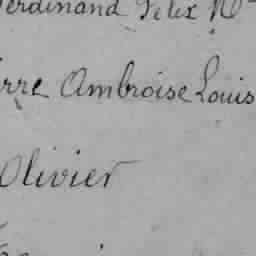 Ferdinand Felix N
rre Ambroise Louis
Olivier